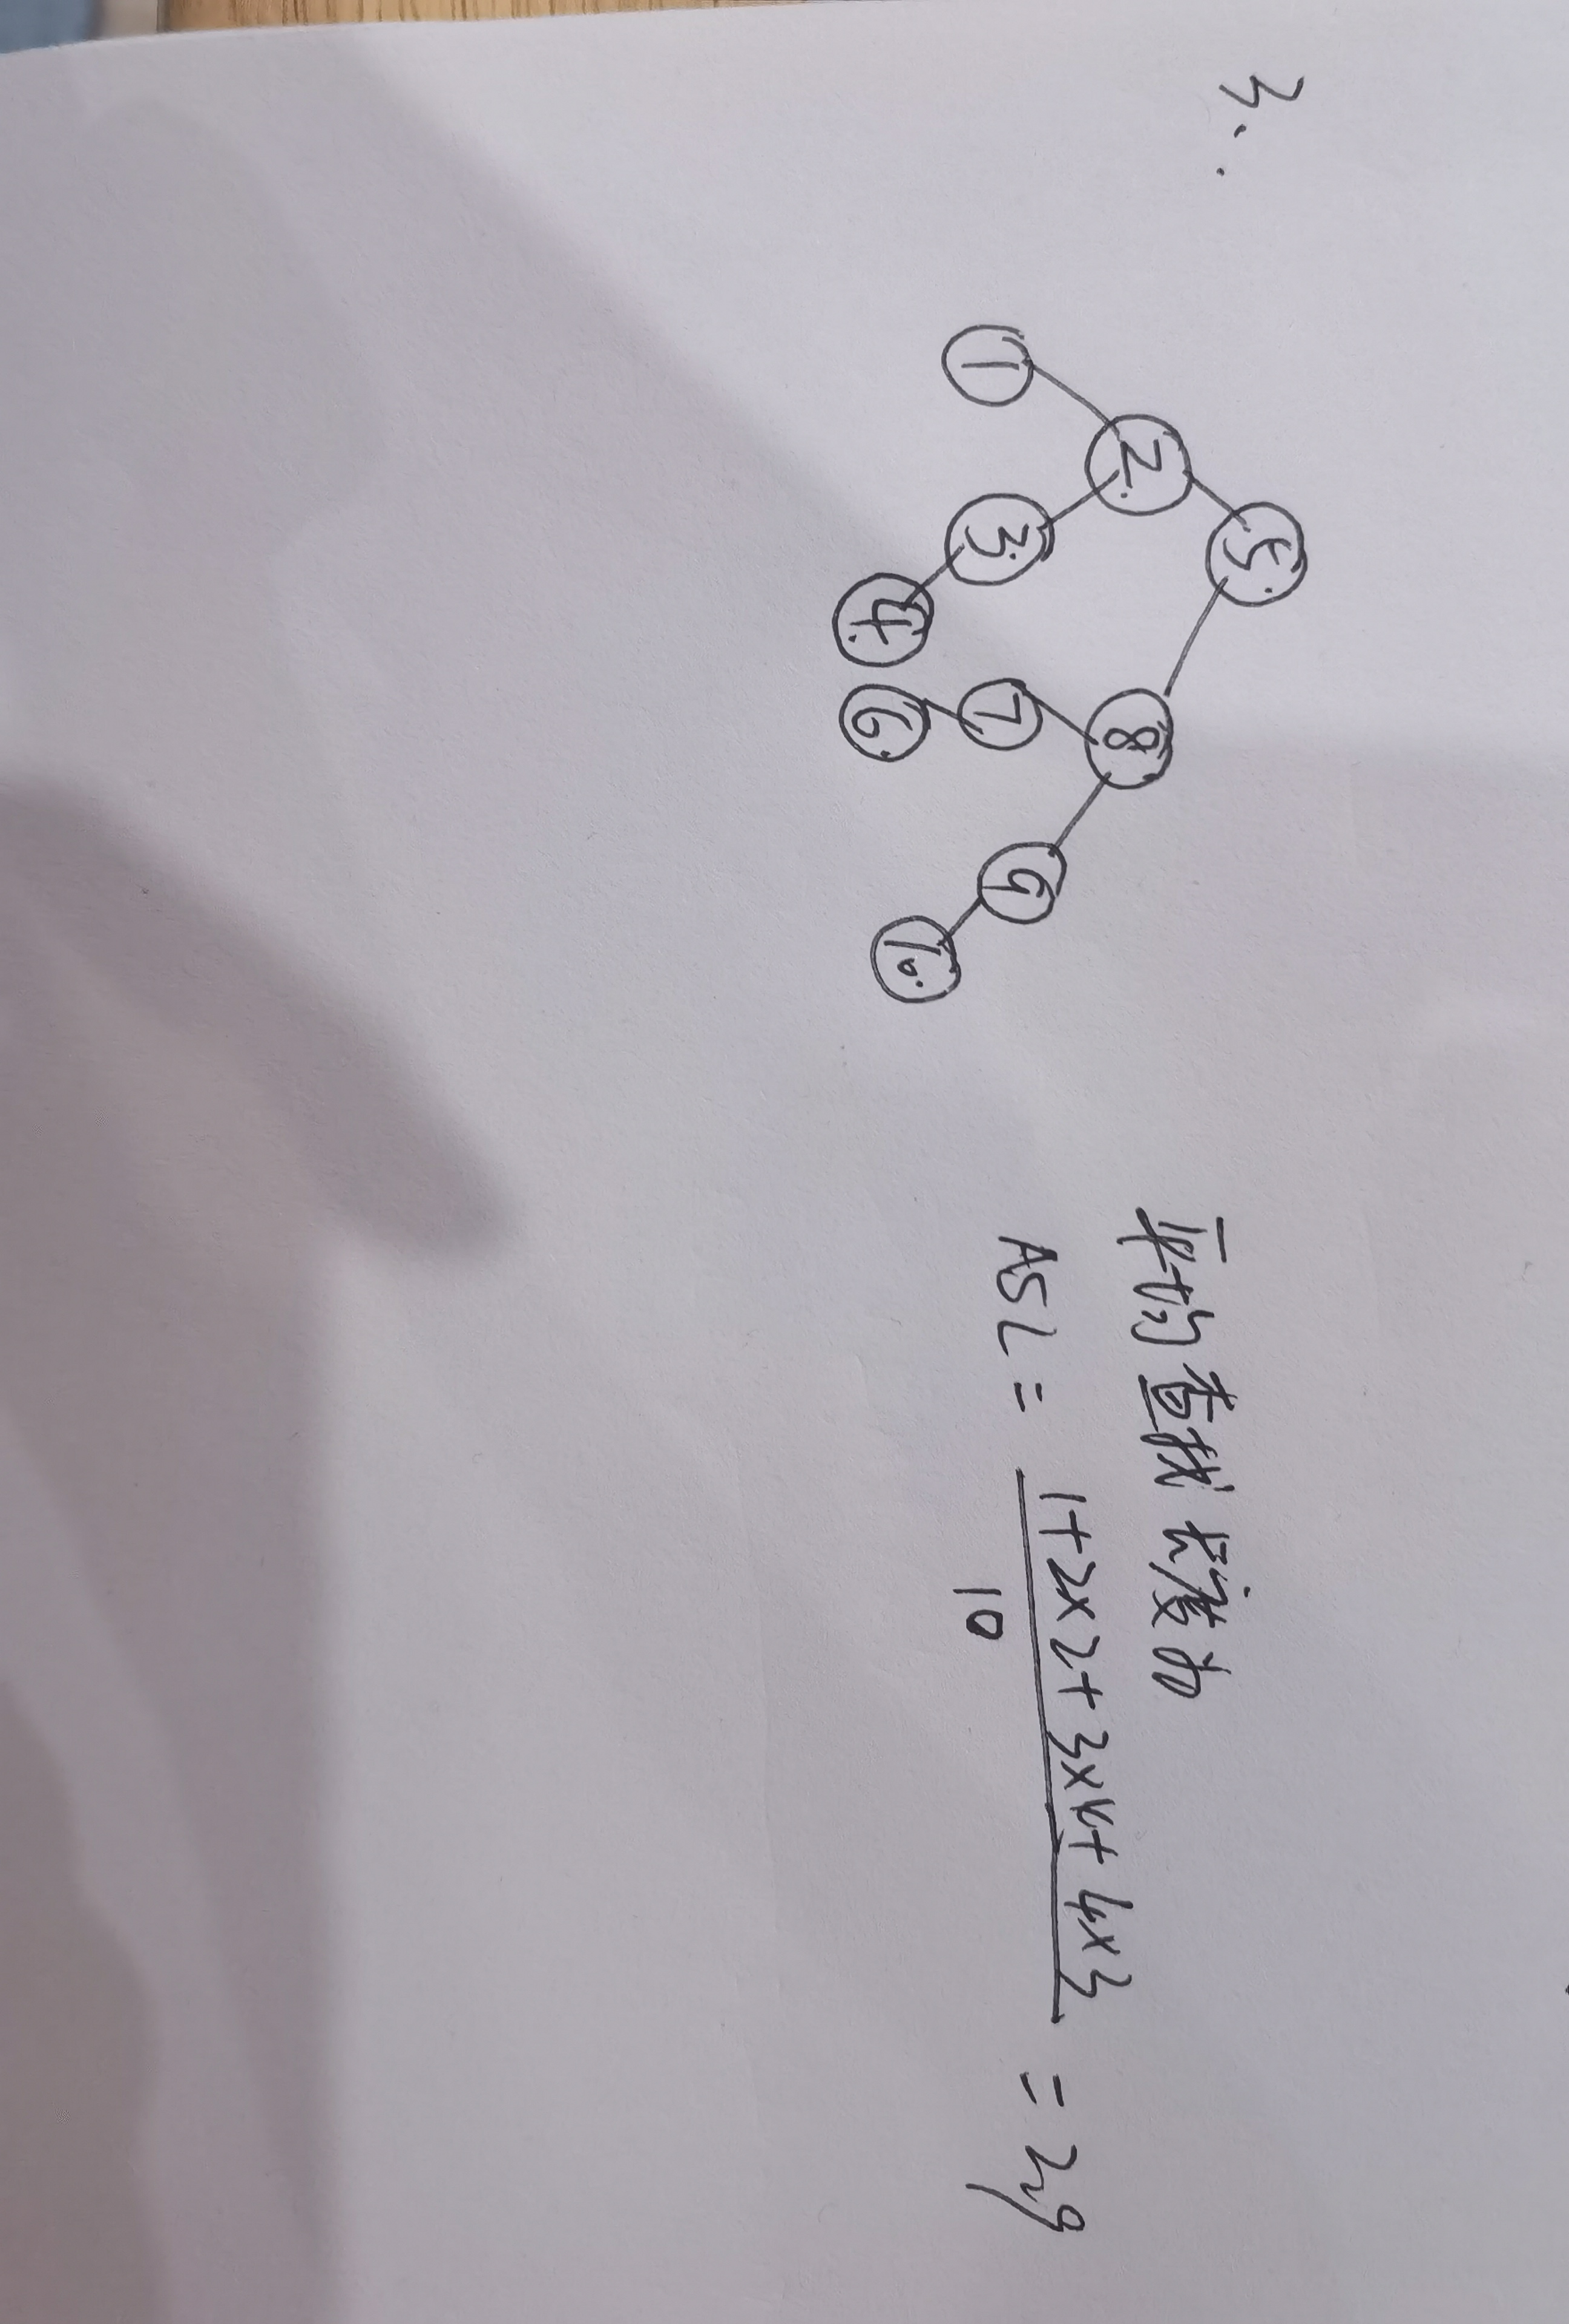 3.
5
2 8
1 3 7 9
4 6 10
平均查找长度为
ASL = 1+2×2+3×4+4×3 = 2.9
10